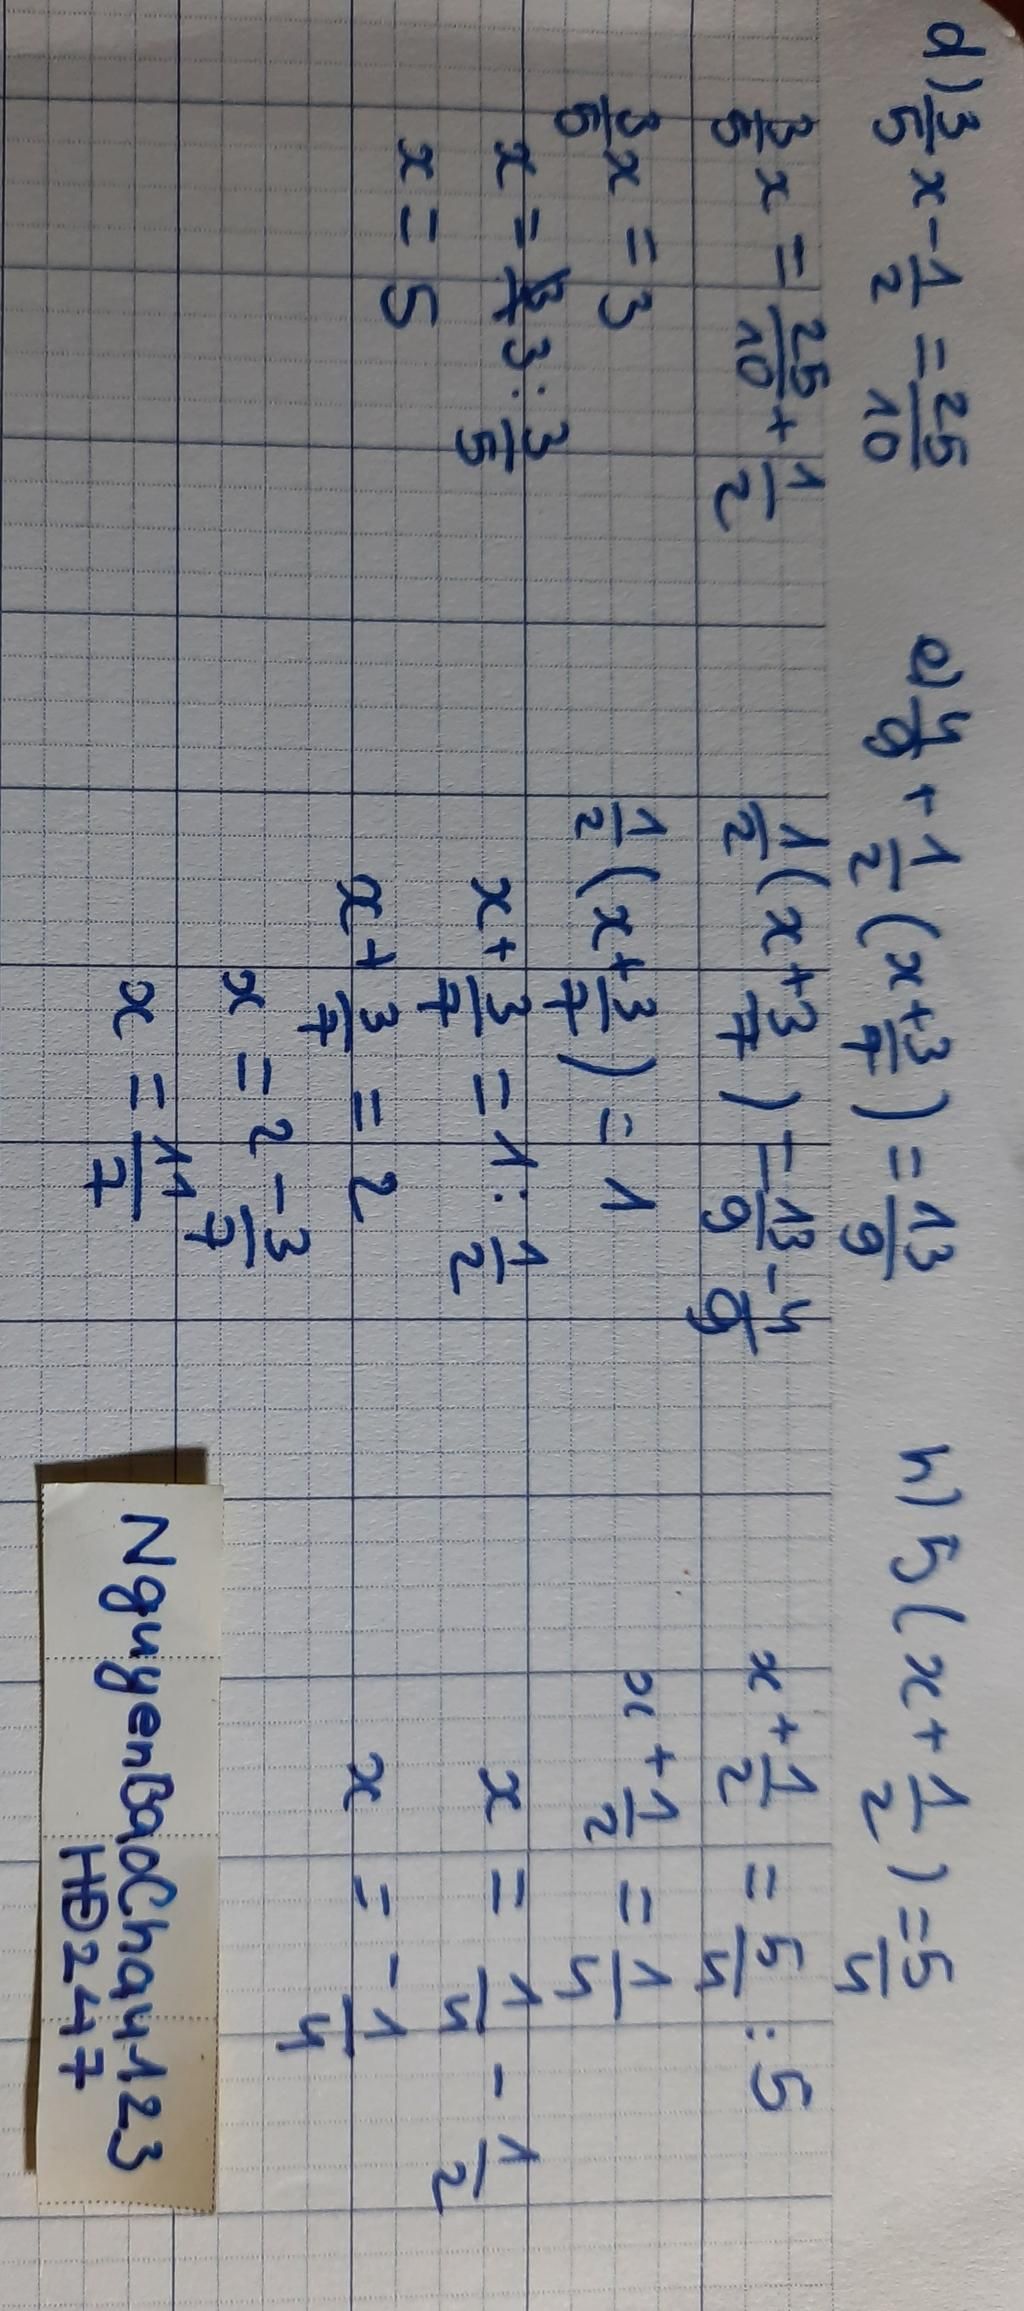 d) 3/5 x - 1/2 = 25/10
3/5 x = 25/10 + 1/2
3/5 x = 3
x = 3 : 3/5
x = 5
e) 4/9 + 1/2 (x + 3/7) = 13/9
1/2 (x + 3/7) = 13/9 - 4/9
1/2 (x + 3/7) = 1
x + 3/7 = 1 : 1/2
x + 3/7 = 2
x = 2 - 3/7
x = 11/7
h) 5 (x + 1/2) = 5/4
x + 1/2 = 5/4 : 5
x + 1/2 = 1/4
x = 1/4 - 1/2
x = - 1/4
NguyenBaoChau123
HD247